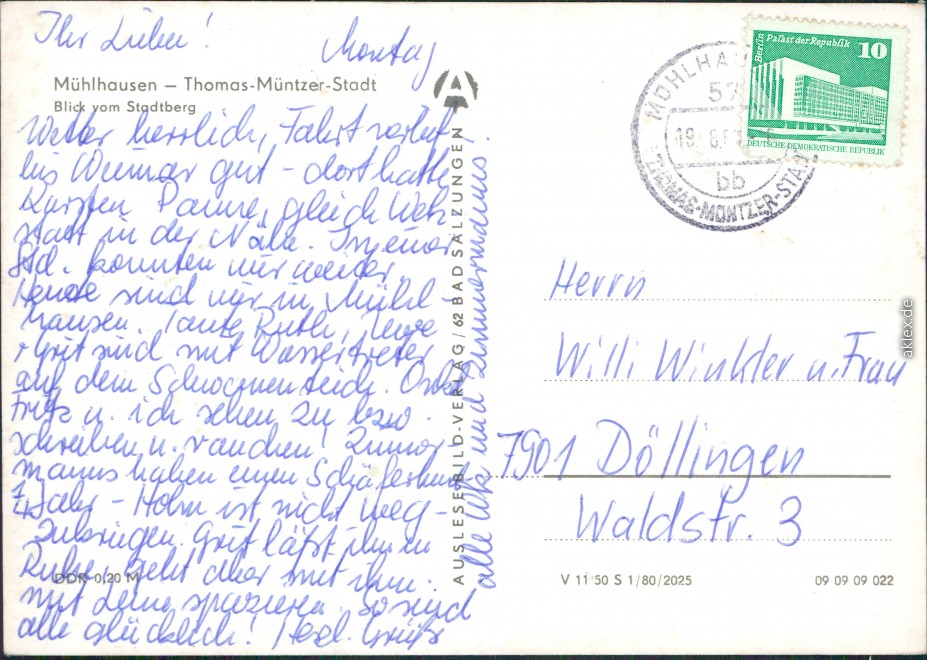 Ihr Lieben!
Montag
Mühlhausen – Thomas-Müntzer-Stadt
Blick vom Stadtberg
Wetter herrlich, Fahrt verlief
bis Weimar gut – dort hatte
Karsten Panne, gleich Werk-
statt in der Nähe. In einer
Std. konnten wir weiter.
Heute sind wir in Mühl
hausen. Tante Ruth, Uwe
+ Grit sind mit Wassertreter
auf dem Schwanenteich. Onkel
Fritz u. ich sehen zu bzw.
schreiben u. rauchen! Zimmer
manns haben einen Schäferhund
1 Jahr – Holm ist nicht weg-
zukriegen. Grit läßt ihn in
Ruhe, geht aber mit ihm
mit Leine spazieren. So sind
alle glücklich! Herzl. Grüße
alle und Zimmermanns
DDR 0,20 M
AUSLESEBILD-VERLAG / 62 BAD SALZUNGEN
MÜHLHAU
57
19. 8. 8
bb
THOMAS-MÜNTZER-STADT
Berlin Palast der Republik 10
DEUTSCHE DEMOKRATISCHE REPUBLIK
Herrn
Willi Winkler u. Frau
7901 Döllingen
Waldstr. 3
V 11 50 S 1/80/2025
09 09 09 022
aklex.de